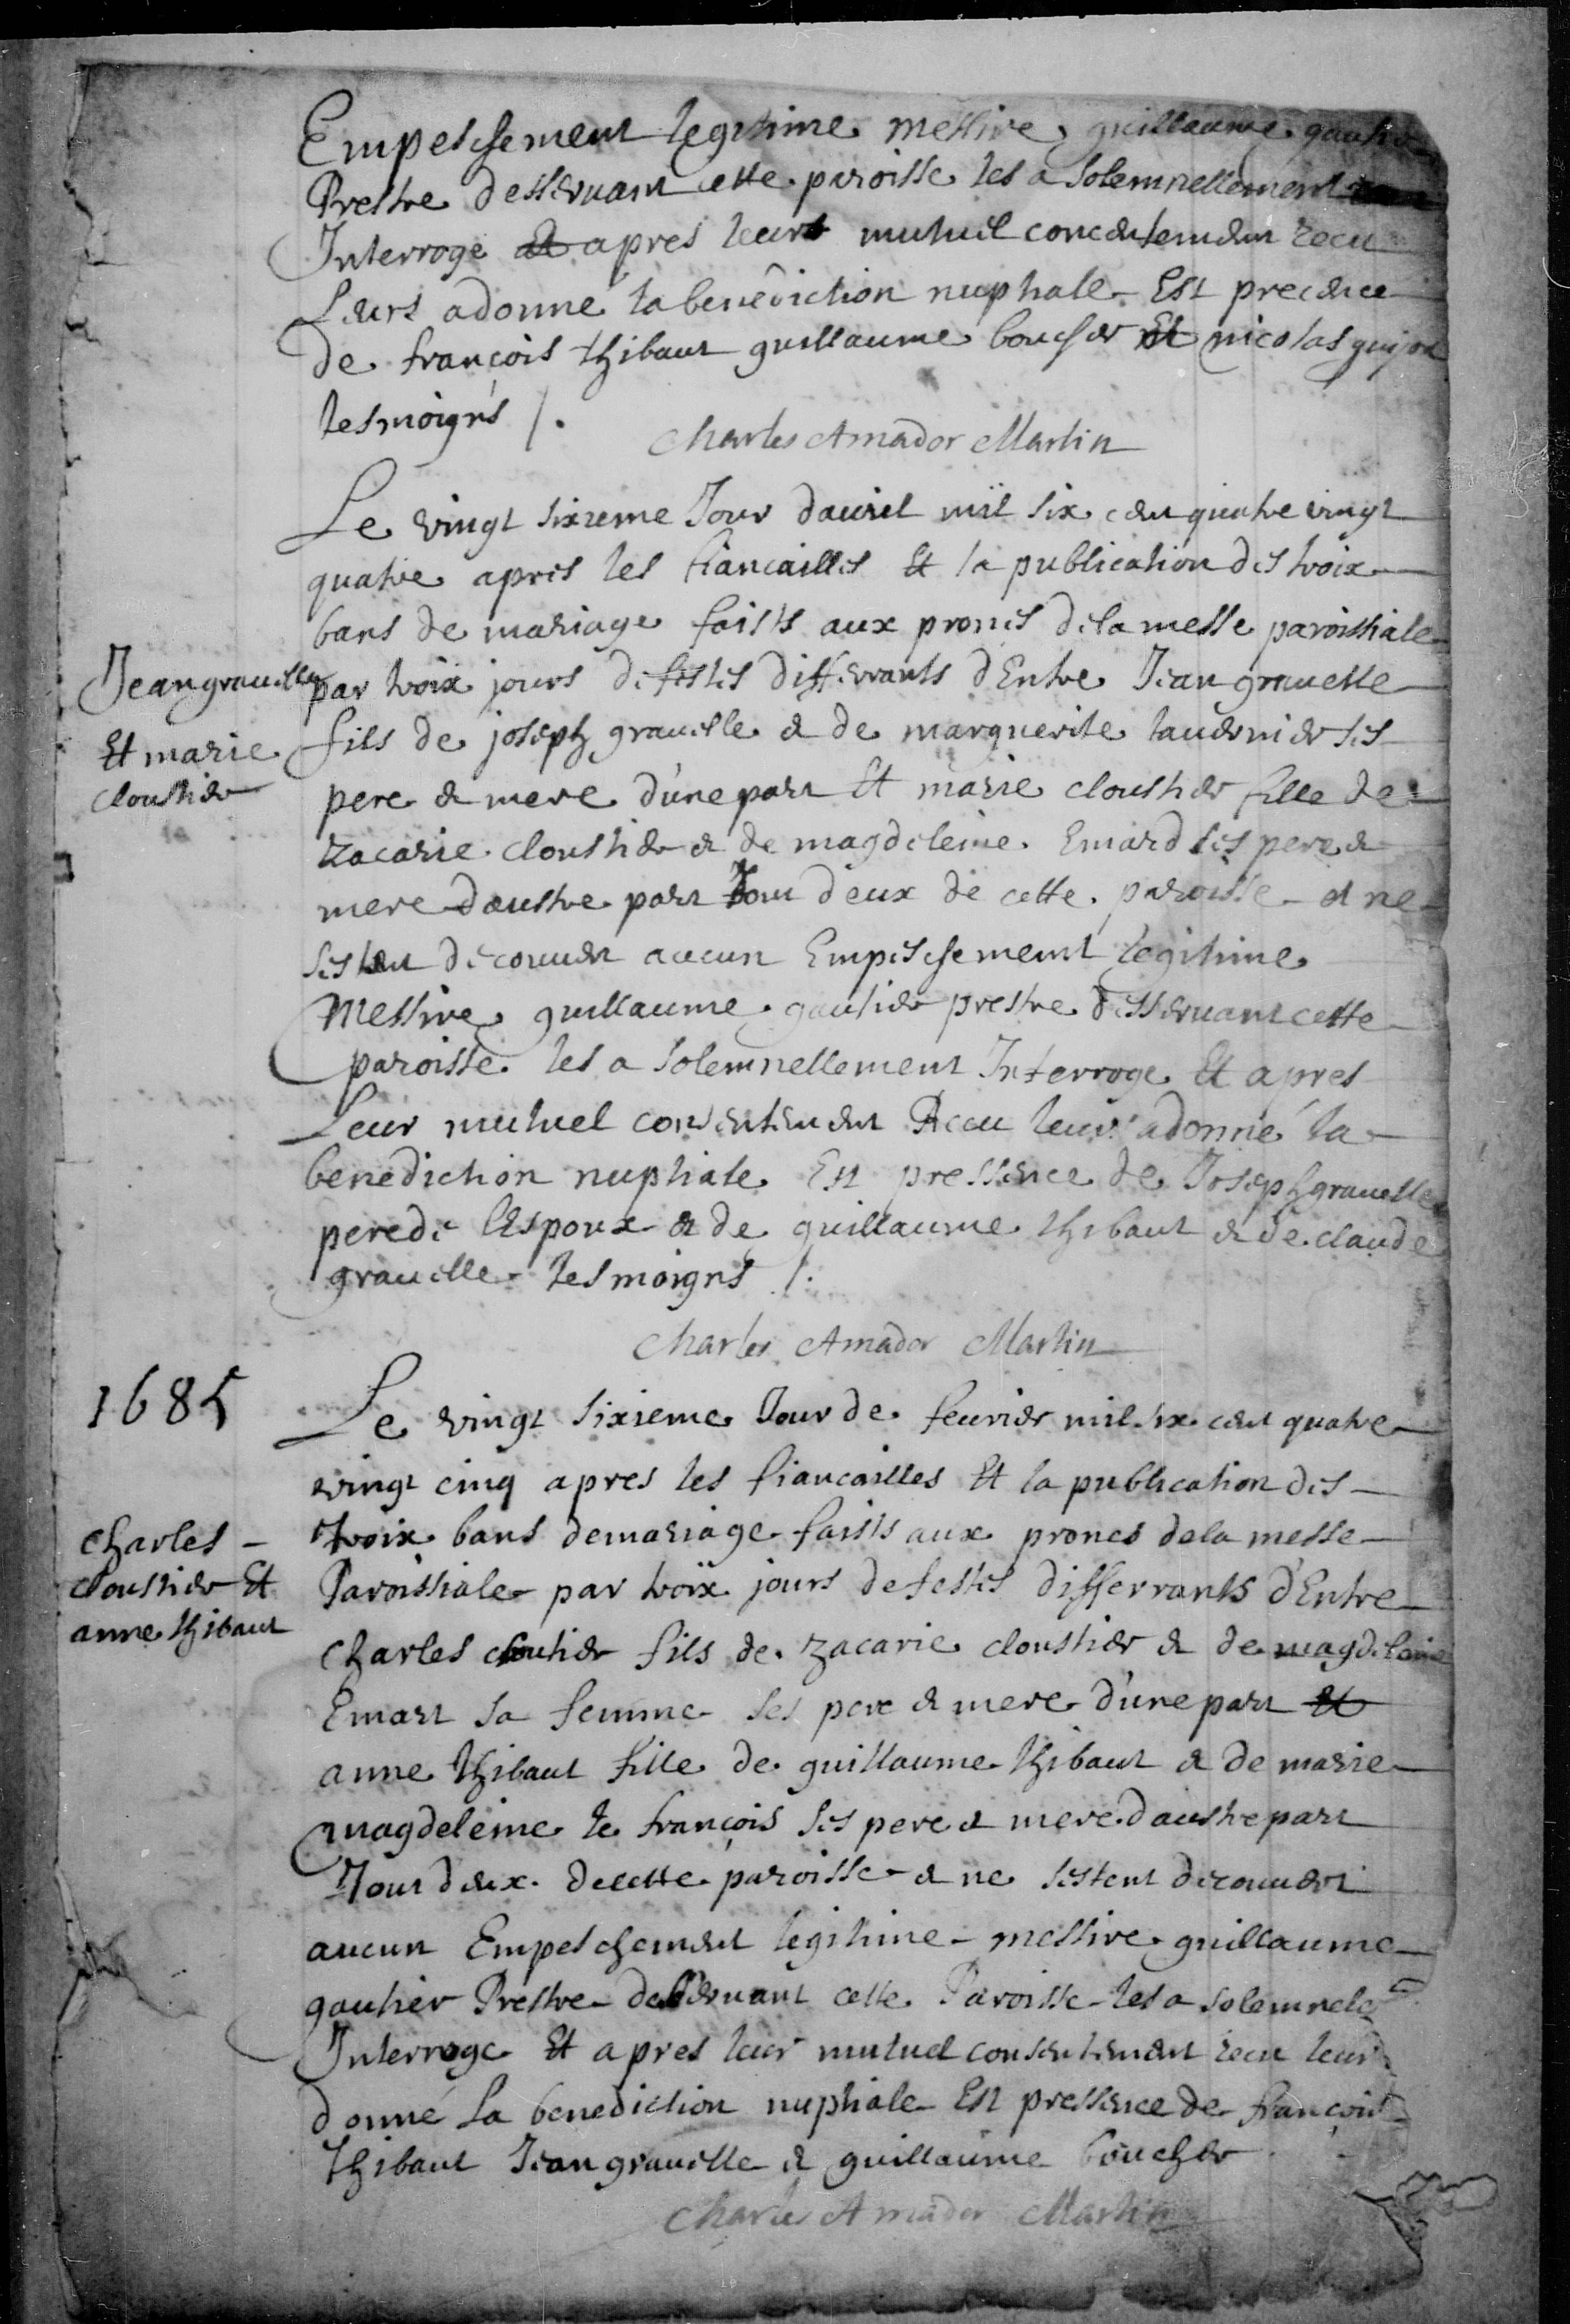 Empeschement legitime messire guillaume gautier
Prestre desseruant cette paroisse les a solemnellement
Interrogé et apres leurs mutuel concentement recu
Leurs a donné la benediction nuptialle Est precence
de françois thibaut guillaume boucher Et nicolas guijon
tesmoigns /.
Charles Amador Martin
Le vingt sixieme Jour dauril mil six cent quatre vingt
quatre apres les fiancailles Et la publication des troix
bans de mariage faists aux pronес de la messe paroissiale
Jean grauelle
par troix jours de festes differrants d'Entre Jean grauelle
Et marie
clousтier
fils de joseph grauelle & de marguerite tauernier ses
pere & mere d'une part Et marie cloustier fille de
zacarie cloustier & de magdeleine Emard ses pere &
mere daustre part Tout deux de cette paroisse & ne
sestent decouuert aucun Empeschement legitime
Messire guillaume gautier prestre desseruant cette
paroisse les a solemnellement Interrogé Et apres
Leur mutuel consentement Recu leur a donné la
benediction nuptiale Est pressence de Joseph grauelle
pere de l'espoux & de guillaume thibaut & de claude
grauelle tesmoigns /.
Charles Amador Martin
1685
Le vingt sixieme Jour de feurier mil six cent quatre
vingt cinq apres les fiancailles Et la publication des
charles
cloustier Et
anne thibaut
troix bans de mariage faists aux prones de la messe
Paroissiale par troix jours de festes differrants d'Entre
charles cloutier fils de zacarie cloustier & de magdelaine
Emart sa femme ses pere & mere d'une part Et
anne thibaut fille de guillaume thibaut & de marie
magdeleine le françois ses pere & mere daustre part
Tout deux de cette paroisse & ne sestent decouuert
aucun Empeschement legitime messire guillaume
gautier Prestre desseruant cette Paroisse les a solemnele
Interrogé Et apres leur mutuel consentement recu leur
donné la benediction nuptiale Est pressence de françois
thibaut Jean grauelle & guillaume boucher
Charles Amador Martin